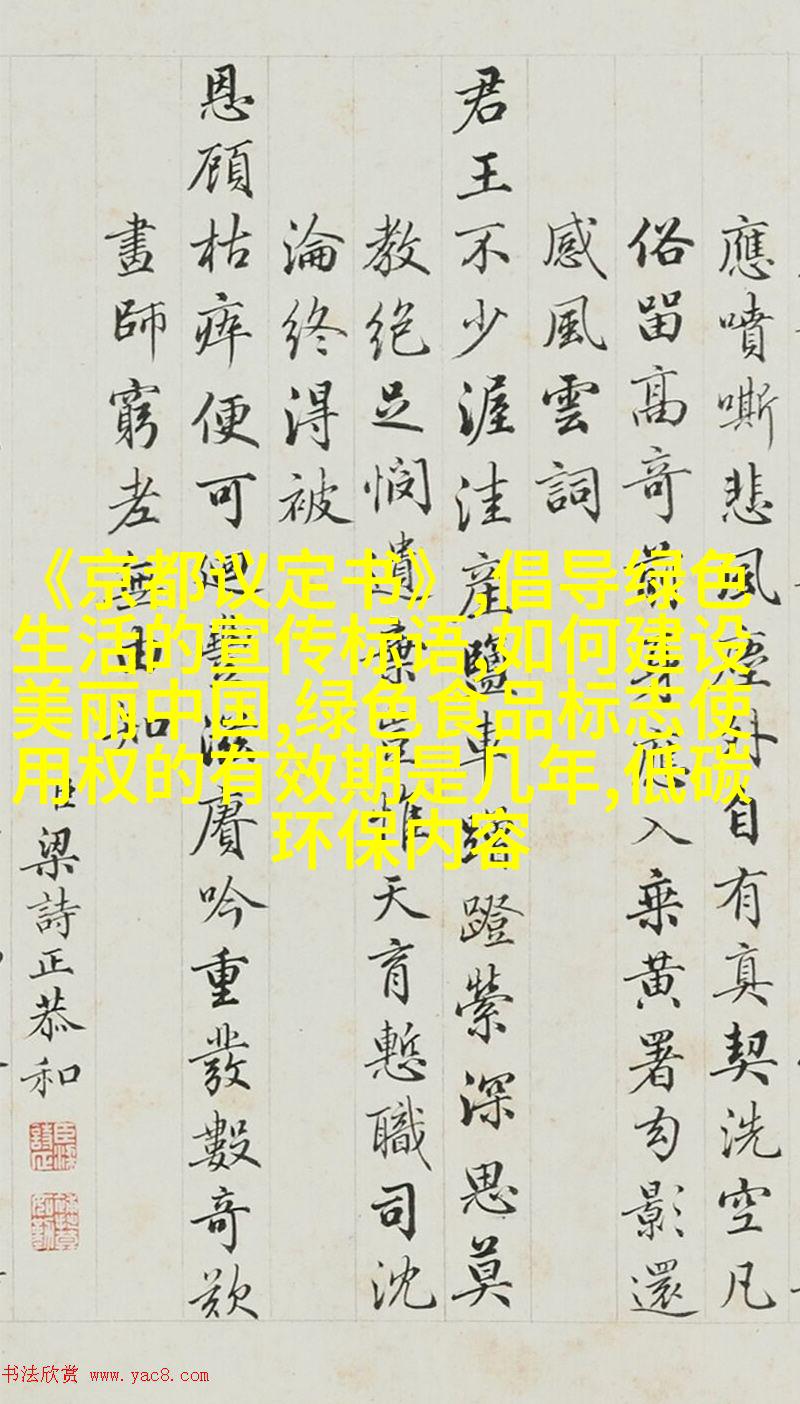 應噴嘶悲風塵外自有真契洗空凡
俗留高奇
應入乗黄署勾影還
感風雲詞
君王不少渥洼産鹽車
蹭蹬縈深思莫
教絶足憫遺棄
天育慙職司沈
淪終淂被
恩顧枯痺便可
賡吟重發數奇欵
畫師窮老
臣梁詩正恭和
《京都议定书》,倡导绿色
生活的宣传标语,如何建设
美丽中国,绿色食品标志使
用权的有效期是几年,低碳
环保内容
书法欣赏 www.yac8.com